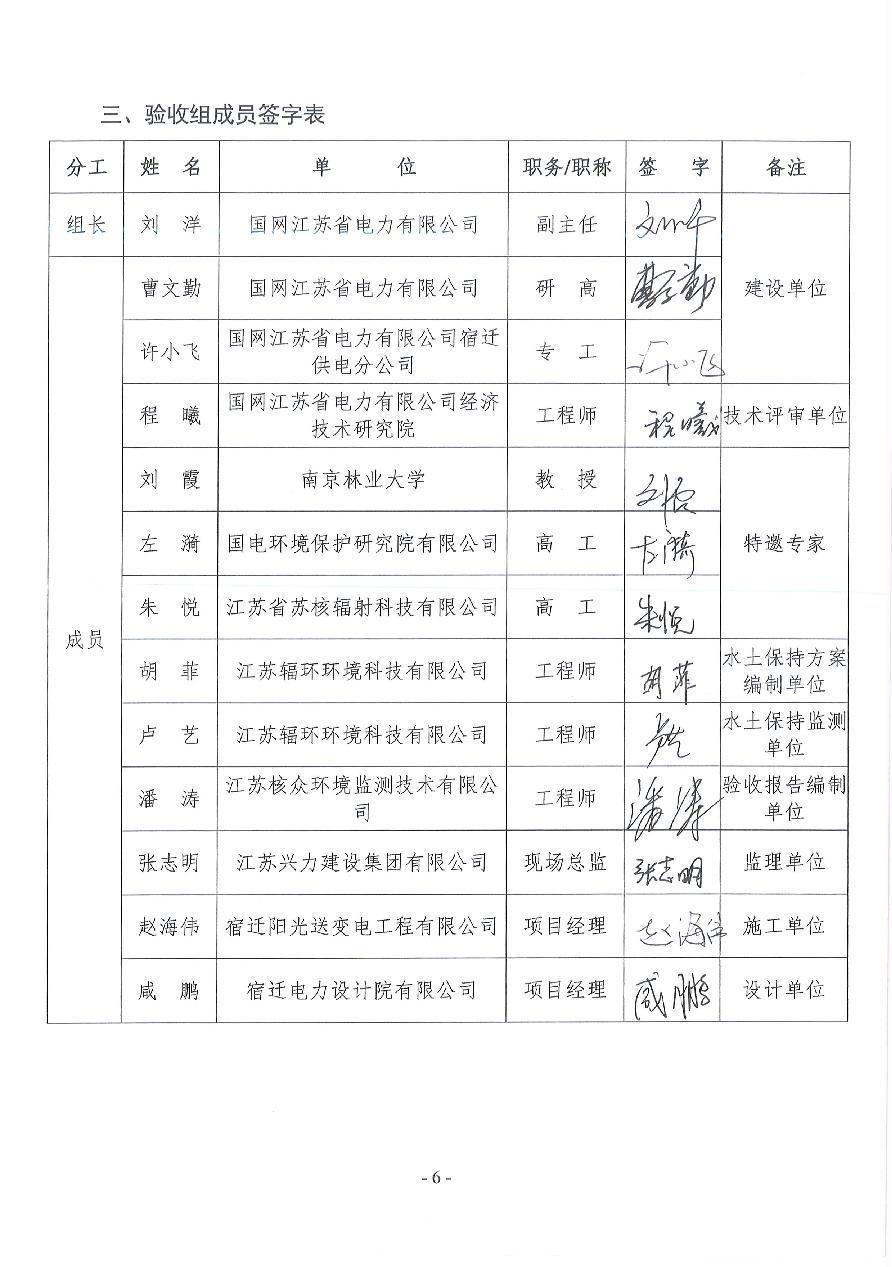 三、验收组成员签字表
分工 姓 名 单 位 职务/职称 签 字 备注
组长 刘 洋 国网江苏省电力有限公司 副主任
曹文勤 国网江苏省电力有限公司 研 高 曹文勤 建设单位
许小飞 国网江苏省电力有限公司宿迁
供电分公司 专 工 许小飞
程 曦 国网江苏省电力有限公司经济
技术研究院 工程师 程曦 技术评审单位
刘 霞 南京林业大学 教 授 刘霞
左 漪 国电环境保护研究院有限公司 高 工 左漪 特邀专家
朱 悦 江苏省苏核辐射科技有限公司 高 工 朱悦
成员
胡 菲 江苏辐环环境科技有限公司 工程师 胡菲 水土保持方案
编制单位
卢 艺 江苏辐环环境科技有限公司 工程师 卢艺 水土保持监测
单位
潘 涛 江苏核众环境监测技术有限公
司 工程师 潘涛 验收报告编制
单位
张志明 江苏兴力建设集团有限公司 现场总监 张志明 监理单位
赵海伟 宿迁阳光送变电工程有限公司 项目经理 赵海伟 施工单位
咸 鹏 宿迁电力设计院有限公司 项目经理 咸鹏 设计单位
- 6 -